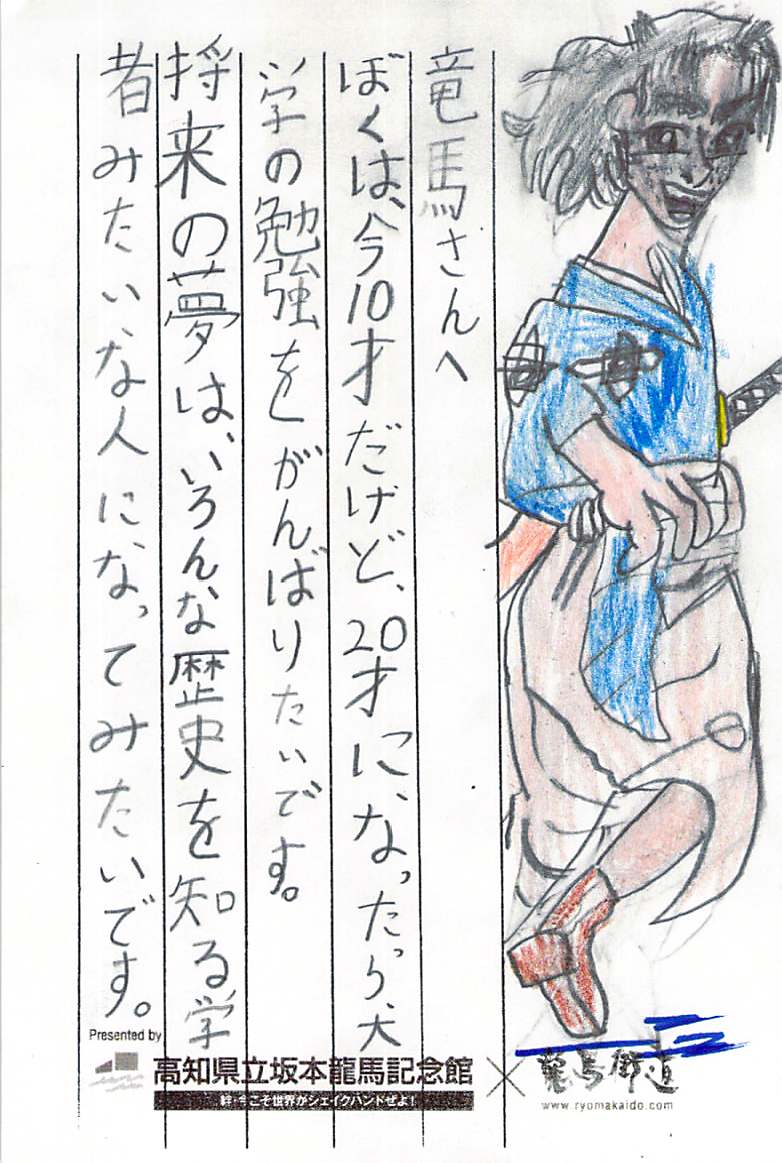 竜馬さんへ
ぼくは、今10才だけど、20才になったら、大
学の勉強をがんばりたいです。
将来の夢は、いろんな歴史を知る学
者みたいな人になってみたいです。
Presented by
高知県立坂本龍馬記念館
絆・今こそ世界がシェイクハンドぜよ!
龍馬街道
www.ryomakaido.com